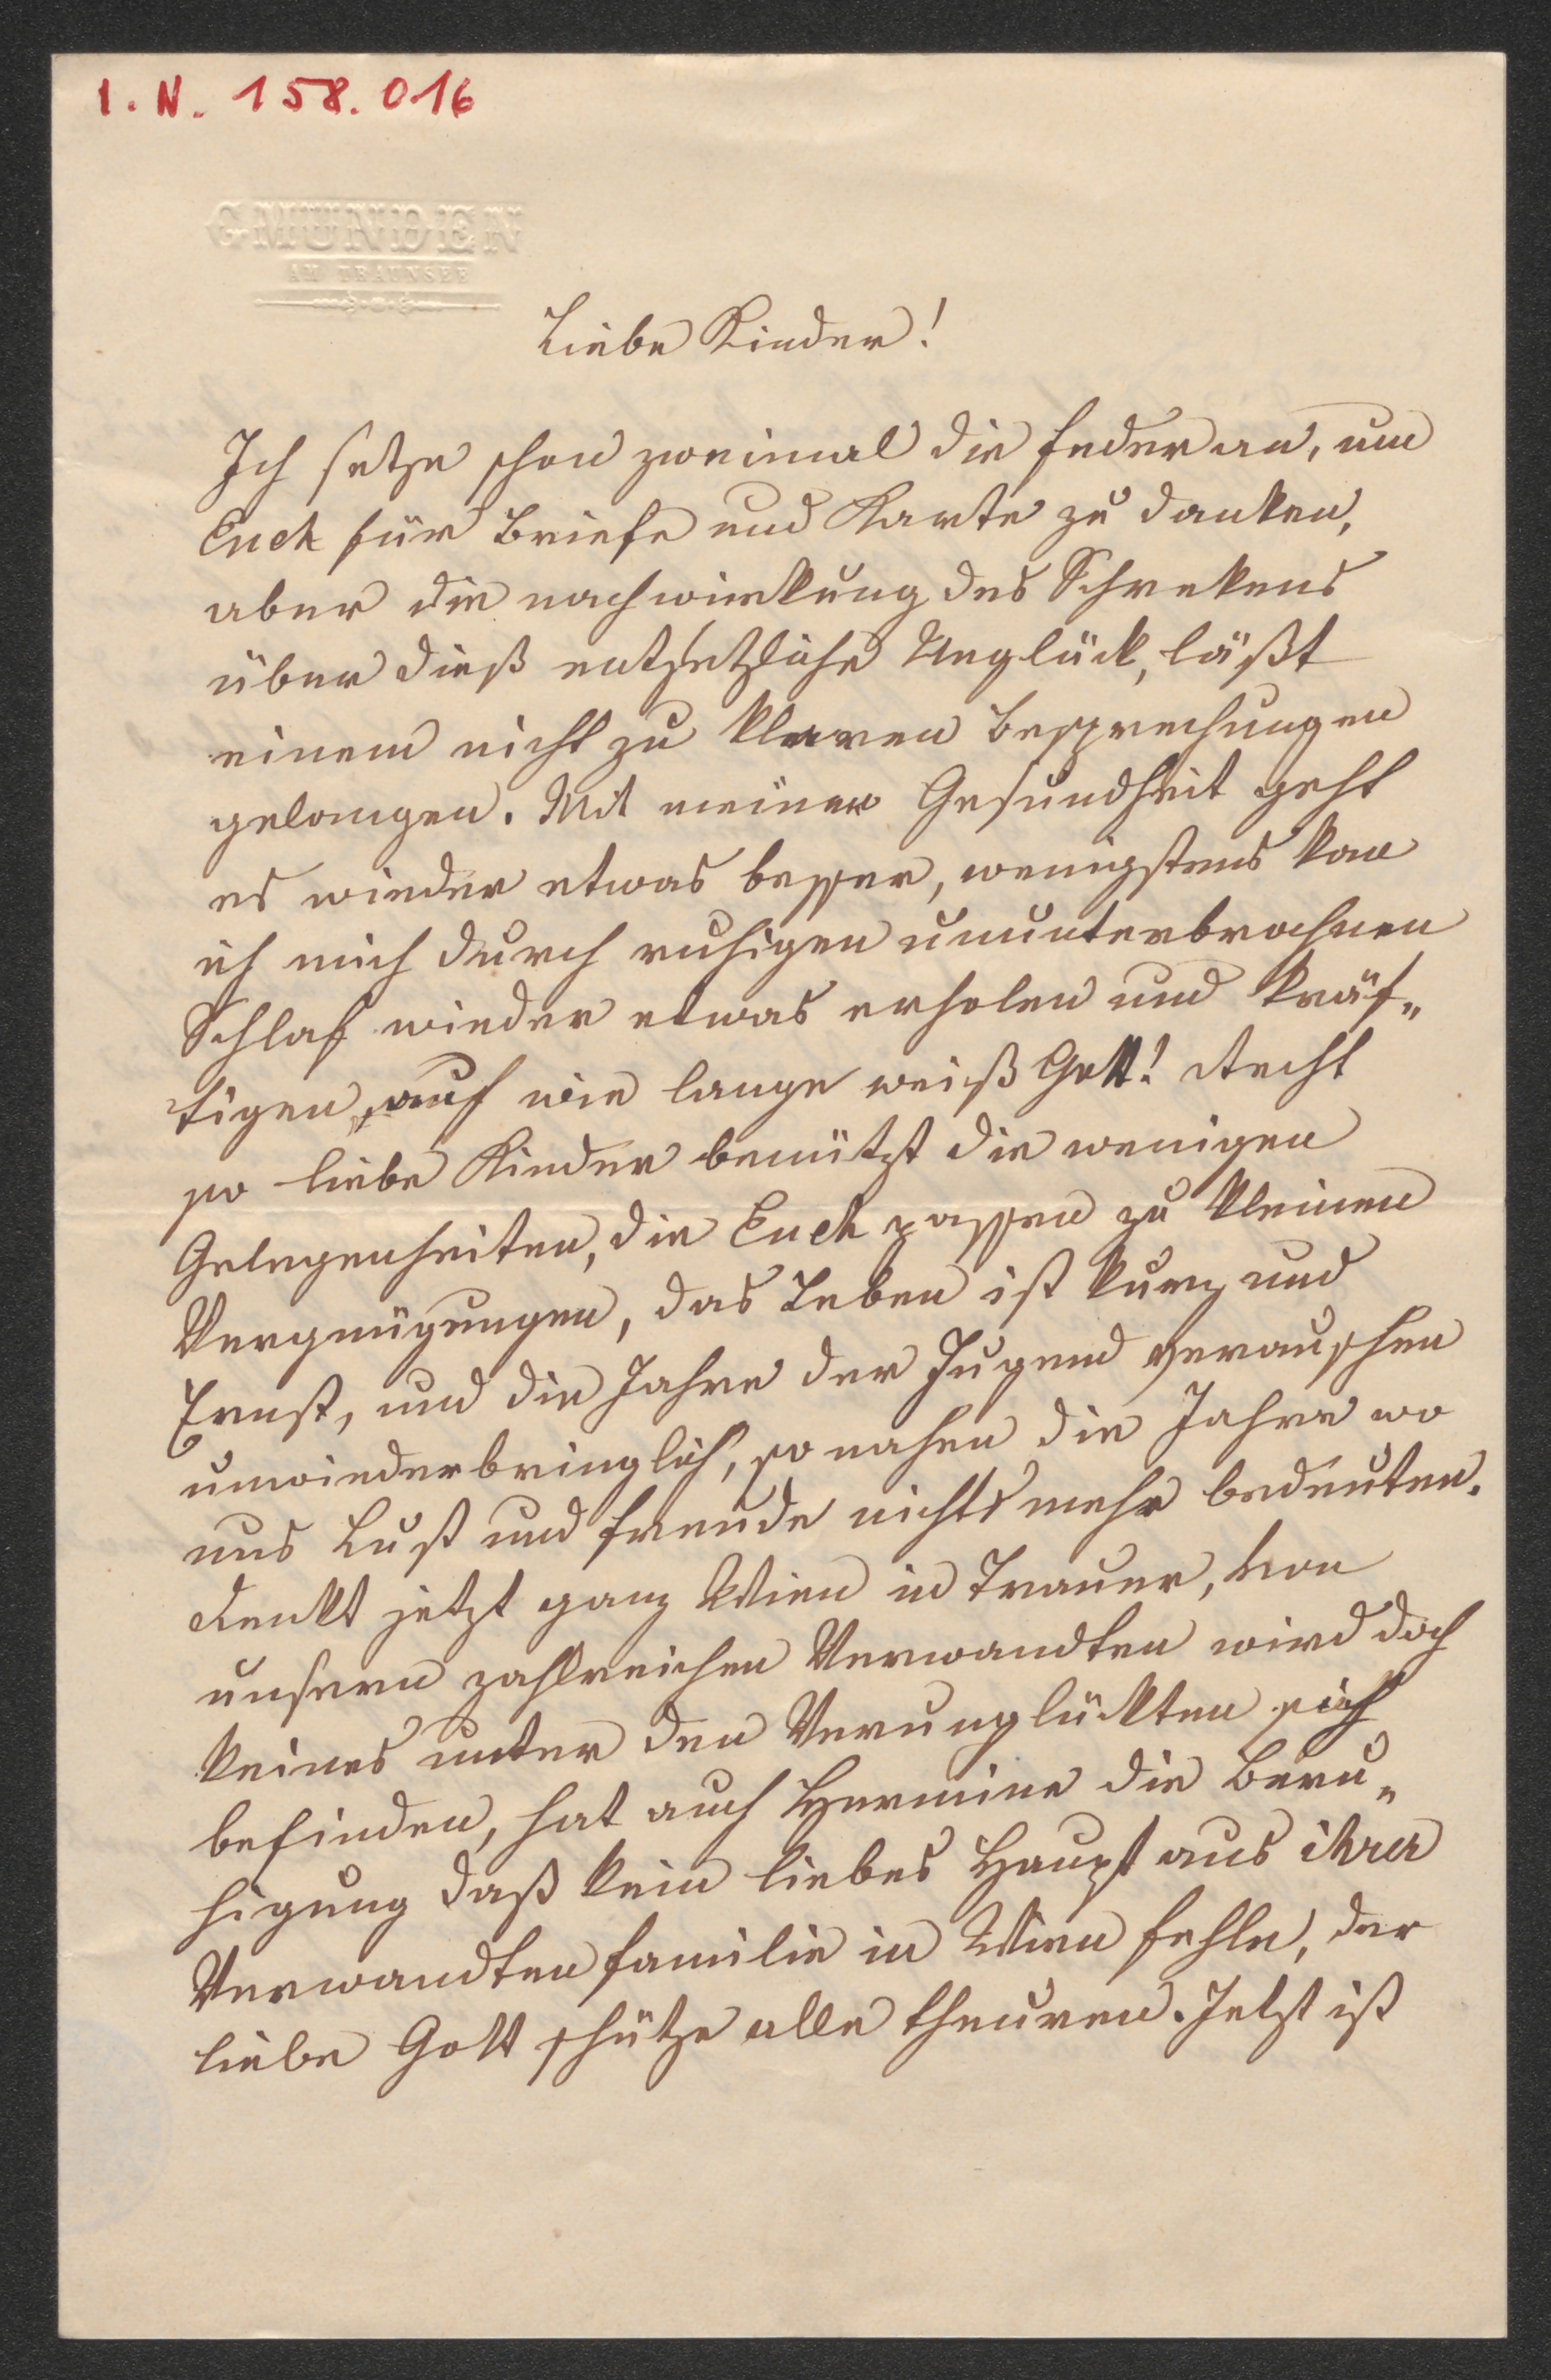 I. N. 158.016
GMUNDEN
AM TRAUNSEE
Liebe Kinder!
Ich setze schon zweimal die Feder an, um
Euch für Briefe und Karte zu danken,
aber die nachwirkung des Schrekens
über dieß entsetzliche Unglück, läßt
einem nicht zu klaren Besprechungen
gelangen. Mit meiner Gesundheit geht
es wieder etwas besser, wenigstens kan
ich mich durch ruhigen ununterbrochnen
Schlaf wieder etwas erholen und kräf„
tigen, auf wie lange weiß Gott! Recht
so liebe Kinder benützt die wenigen
Gelegenheiten, die Euch passen zu kleinen
Vergnügungen, das Leben ist kurz und
Ernst, und die Jahre der Jugend verrauschen
unwiederbringlich, so nahen die Jahre wo
uns Lust und Freude nichts mehr bedeuten.
Denkt jetzt ganz Wien in Trauer, von
unsern zahlreichen Verwandten wird doch
keines unter den Verunglückten sich
befinden, hat auch Hermine die Beru„
higung daß kein liebes Haupt aus ihrer
Verwandten familie in Wien fehle, der
liebe Gott schütze alle theuren. Jetzt ist